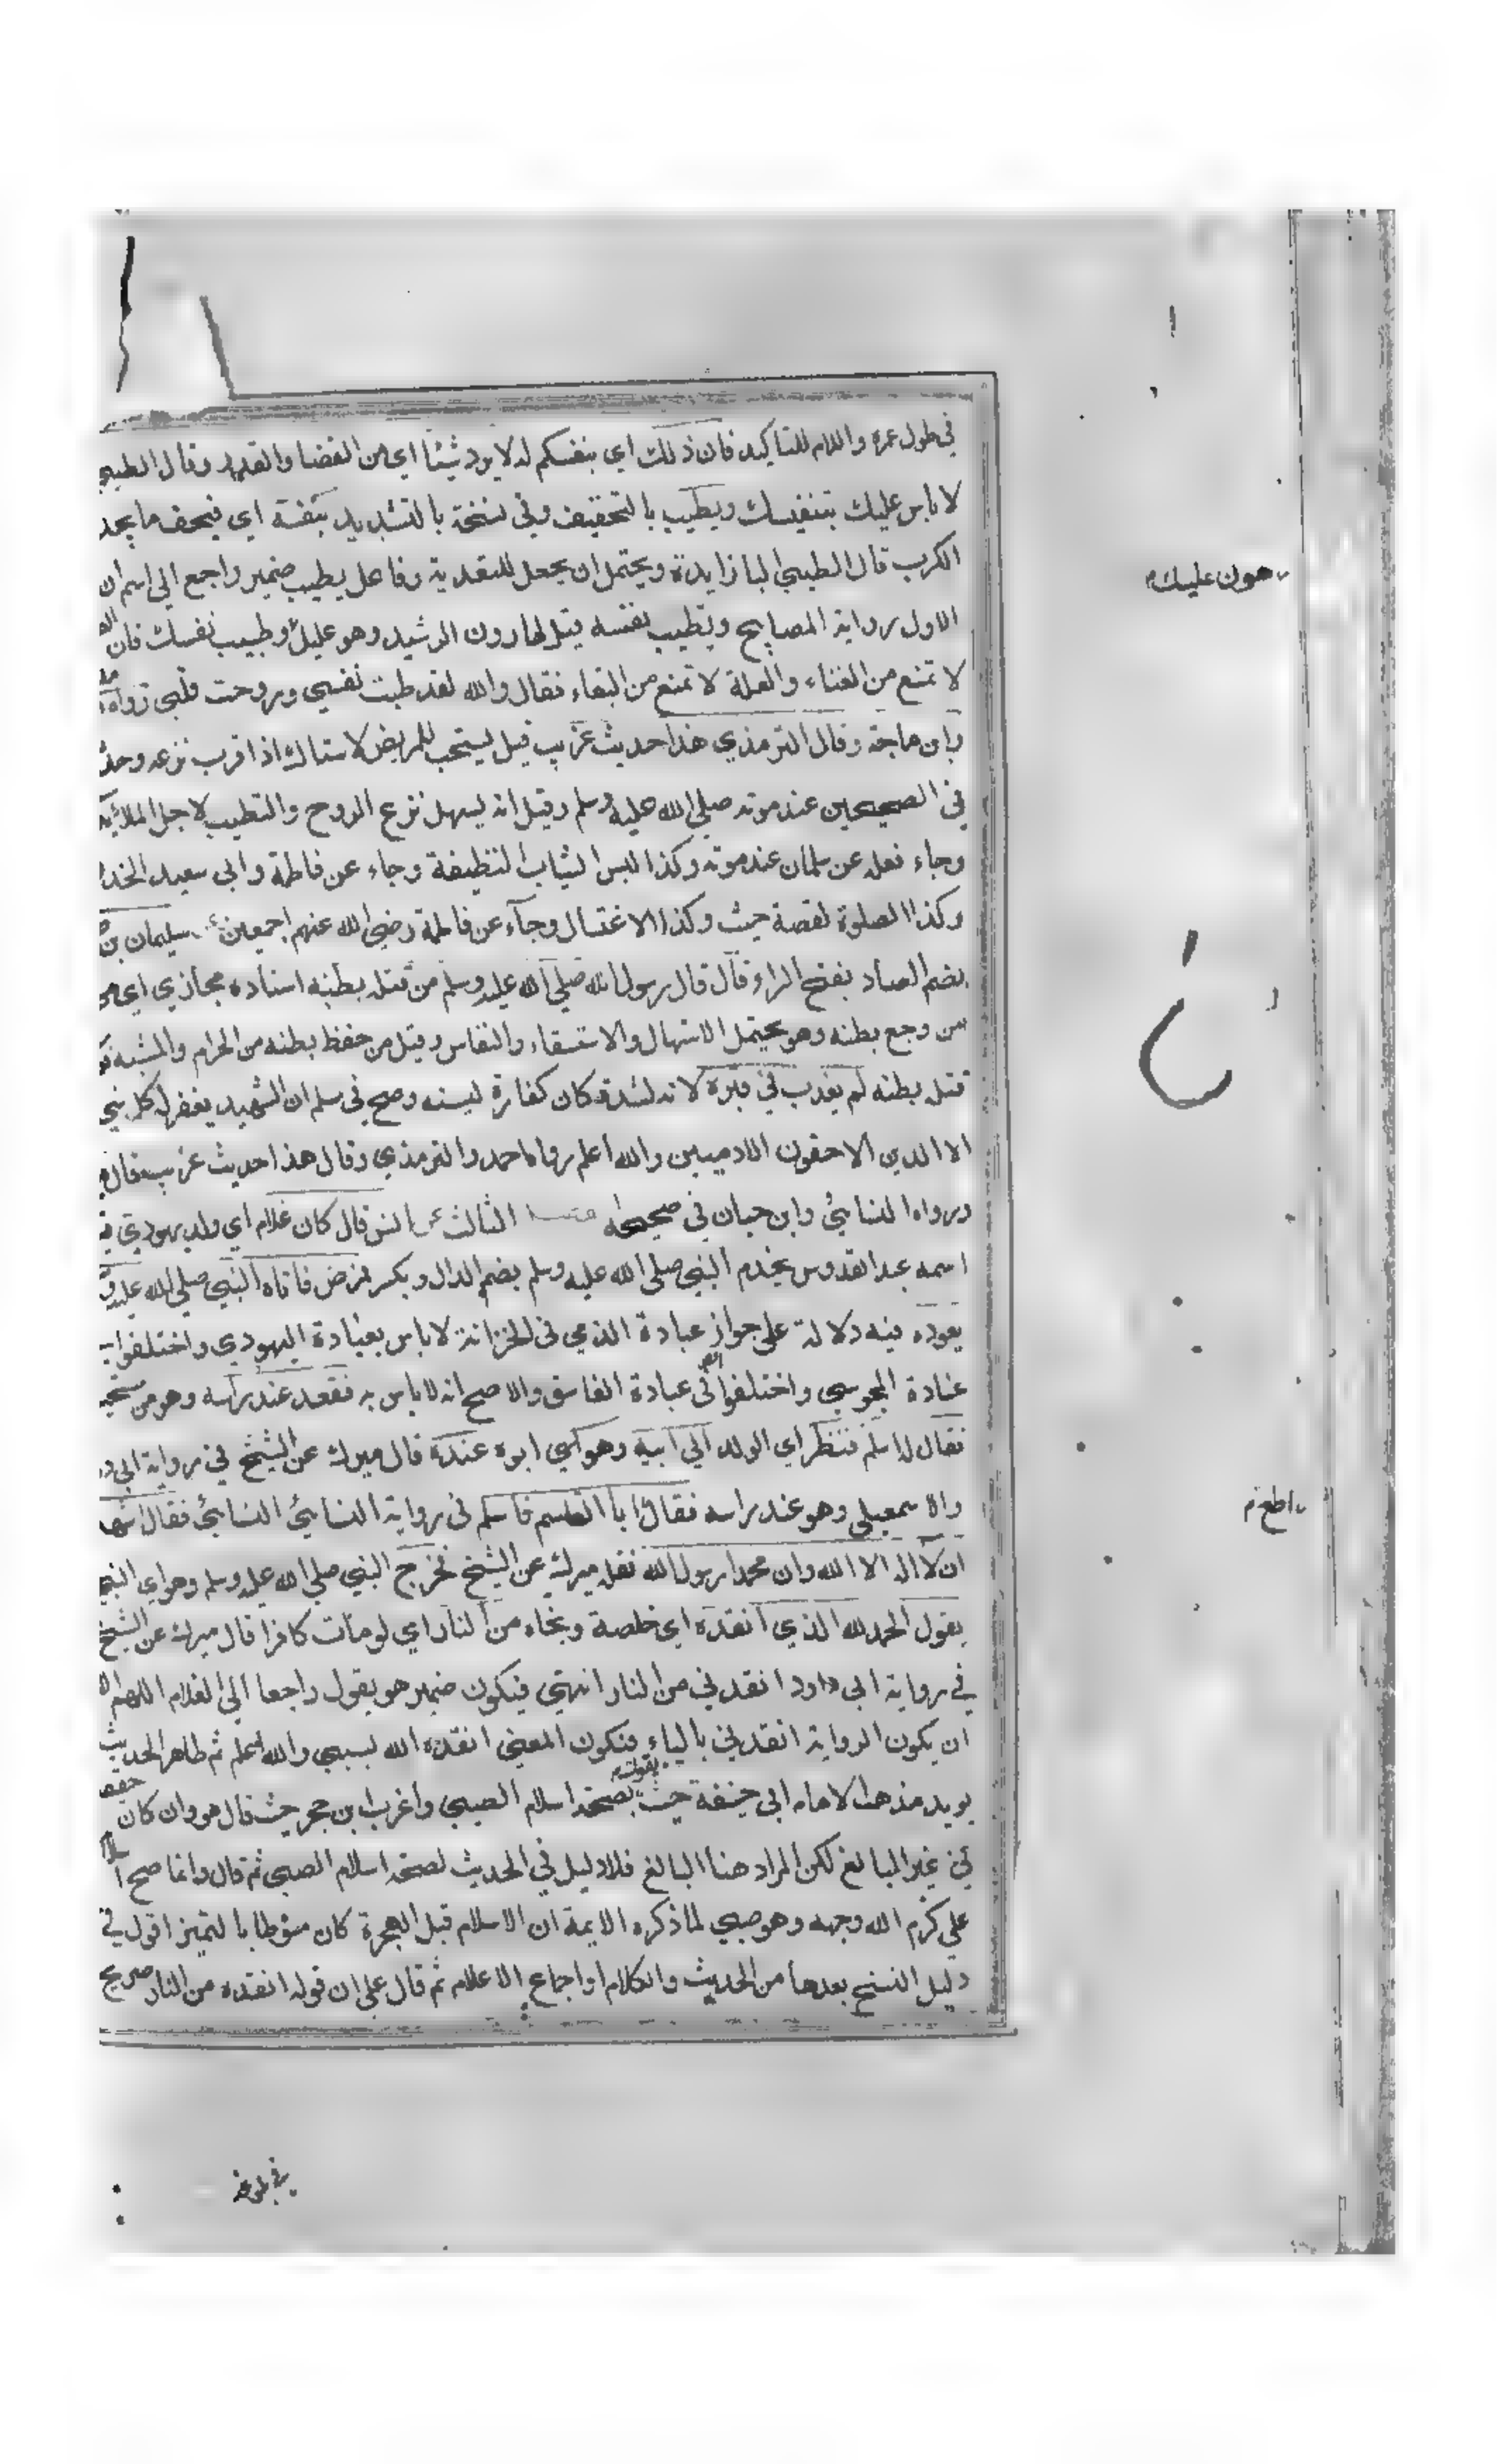 في طول عمره واللام للتاكيد فان ذلك اي بنفسكم له لا يرد شيئا اي من القضا والقدر وقال الطيبي
لا باس عليك بتنفيسك ويطيب بالتخفيف وفي نسخة بالتشديد بنفسه اي فيخف ما يجد
الكرب قال الطيبي البا زايدة ويحتمل ان يجعل للتعدية وفاعل يطيب ضمير راجع الي اسم ان
الاول رواية المصابيح ويطيب نفسه قيل لهارون الرشيد وهو عليل وطيب نفسك فان
لا تمنع من الفناء والعلة لا تمنع من البقاء فقال والله لقد طيبت نفسي وروحت قلبي رواه
وابن ماجة وقال الترمذي هذا حديث غريب قيل يستحب للمريض الاستاك اذا قرب نزعه وحد
في الصحيحين عند موته صلي الله عليه وسلم وقيل انه يسهل نزع الروح والتطيب لاجل الملايكة
وجاء فعله عن سلمان عند موته وكذا اللبس الثياب النظيفة وجاء عن فاطمة وابي سعيد الخد
وكذا الصلوة لقصة حيث وكذا الاغتسال وجآء عن فاطمة رضي الله عنهم اجمعين سليمان بن
بضم الصاد بفتح الراء قال قال رسول الله صلي الله عليه وسلم من قتله بطنه اسناده مجازي اي
من وجع بطنه وهو يحتمل الاسهال والاستسقاء والنفاس وقيل من حفظ بطنه من الحرام والمشبه
قتله بطنه لم يعذب في قبره لانه لشدته كان كفارة ليسنه وصح في سلم ان الشهيد يغفر له كل شي
الا الدين الاحقون الادميين والله اعلم رواه احمد والترمذي وقال هذا حديث غريب قال
ورواه النسائي وابن حبان في صحيحه الثالث عن انس قال كان غلام اي ولد يهودي
اسمه عبد القدوس يخدم النبي صلي الله عليه وسلم بضم الدال ويكسر فمرض فاتاه النبي صلي الله عليه و
يعوده فيه دلالة علي جواز عيادة الذمي في الخزانة لا باس بعيادة اليهودي واختلفوا
عيادة المجوسي واختلفوا في عيادة الفاسق والاصح انه لا باس به فقعد عند راسه وهو من
فقال له اسلم فنظر اي الولد الي ابيه وهو اي ابوه عنده قال ميرك عن الشيخ في رواية ابي د
والاسمعيلي وهو عند راسه فقال ابا القاسم فاسلم في رواية النسائي النسائي فقال اشهد
ان لا اله الا الله وان محمدا رسول الله نقله ميرك عن الشيخ فخرج النبي صلي الله عليه وسلم وهو اي النبي
يقول الحمد لله الذي انقذه اي خلصه ونجاه من النار اي لو مات كافرا قال ميرك عن الشيخ
في رواية ابي داود انقذه بي من النار انتهي فيكون ضمير هو يقول راجعا الي الغلام اللهم الا
ان يكون الرواية انقذ بي بالياء فيكون المعني انقذه الله بسببي والله اعلم ثم ظاهر الحديث
يويد مذهب الامام ابي حنيفة حيث يقول بصحة اسلام الصبي واغرب ابن حجر حيث قال هو وان كان حقيقة
في غير البالغ لكن المراد هنا البالغ فلا دليل في الحديث لصحة اسلام الصبي ثم قال وانما صح اسلام
علي كرم الله وجهه وهو صبي لما ذكره الايمة ان الاسلام قبل الهجرة كان منوطا بالتميز اقول في
دليل النسخ بعدها من الحديث والكلام او اجماع الاعلام ثم قال علي ان قوله انقذه من النار صريح
في بلوغه
هون عليك
اطع م